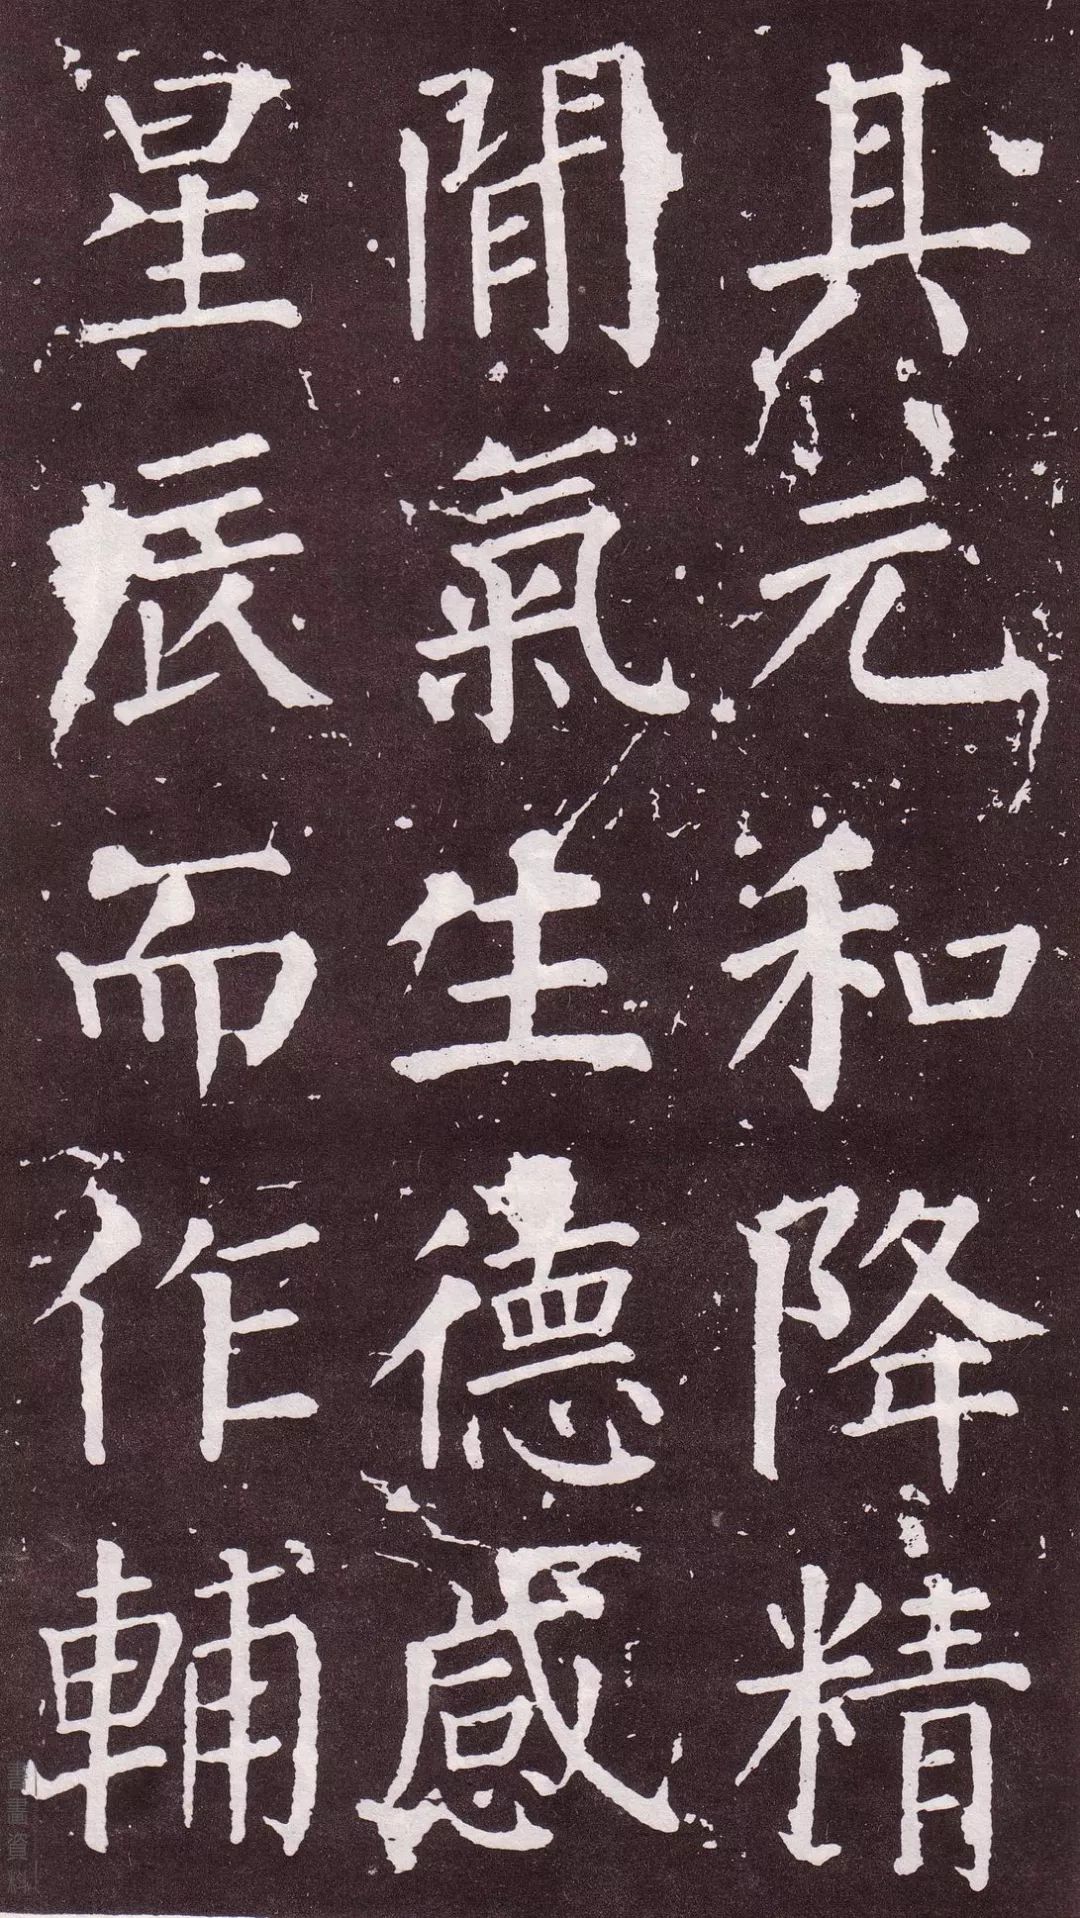 其元和降精
間氣生德感
星辰而作輔
書畫資料